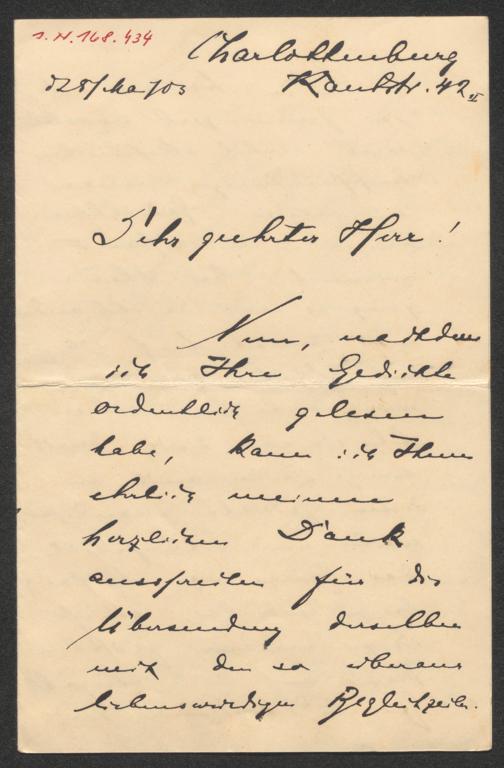 I. N. 168.434
Charlottenburg
d 28/Mai/03 Kantstr. 42 II
Sehr geehrter Herr!
Nun, nachdem
ich Ihre Gedichte
ordentlich gelesen
habe, kann ich Ihnen
ehrlich meinen
herzlichen Dank
aussprechen für die
Übersendung derselben
mit den so überaus
liebenswürdigen Begleitzeilen.